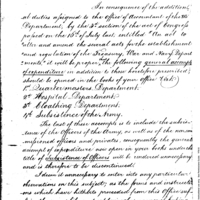 In consequence of the addition-
al duties assigned to the office of Accountant of the War
Department, by the 3d section of the act of Congress
passed on the 16th of July last, entitled "An act to
alter and amend the several acts for the establishment
and regulation of the Treasury, War and Navy Depart-
ments," it will be proper, the following general accounts
of expenditure in addition to those heretofore provided,
should be opened in the books of your office (viz)
1st Quartermasters Department.
2d Hospital Department.
3d Cloathing Department.
4th Subsistence of the Army.
The last of these accounts is to include the subsis-
tence of the Officers of the Army, as well as of the non com-
missioned officers and privates, consequently the general
account of expenditure now open in your books under the
title of Subsistence of Officers will be rendered unnecessary
and is therefore to be discontinued.
I deem it unnecessary to enter into any particular
observations in this subject; as the forms and instructions